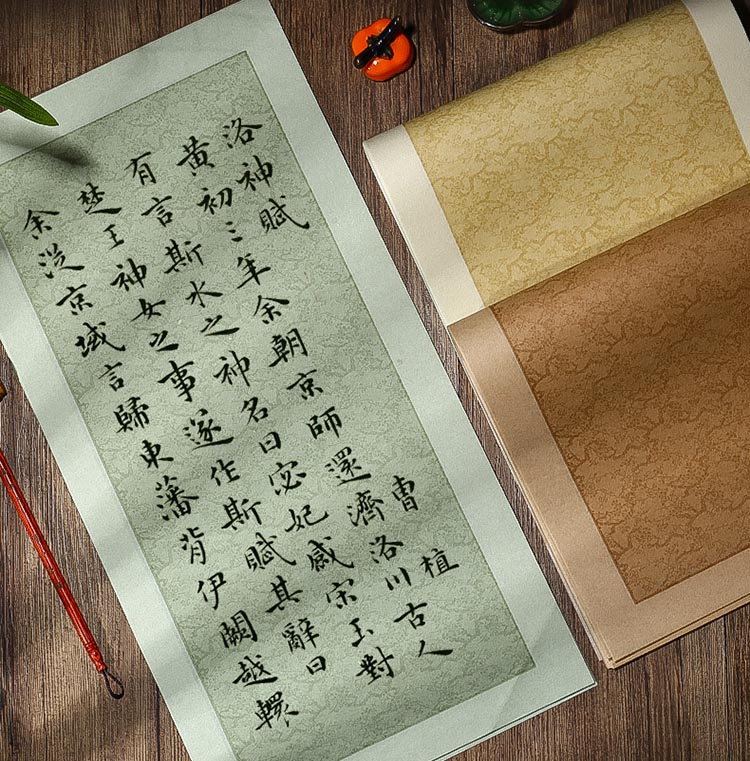 洛神賦 曹植
黄初三年余朝京師還濟洛川古人
有言斯水之神名曰宓妃感宋玉對
楚王神女之事遂作斯賦其辭曰
余從京域言歸東藩背伊闕越轘